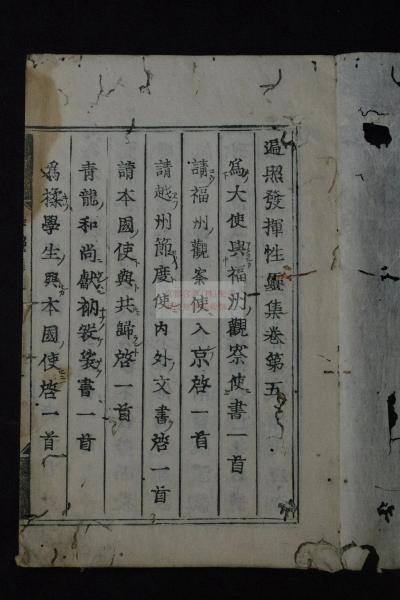 遍照發揮性靈集卷第五
為大使與福州觀察使書一首
請福州觀察使入京啓一首
請越州節度使内外文書啓一首
請本國使與共歸啓一首
青龍和尚獻衲袈裟書一首
爲橘學生與本國使啓一首